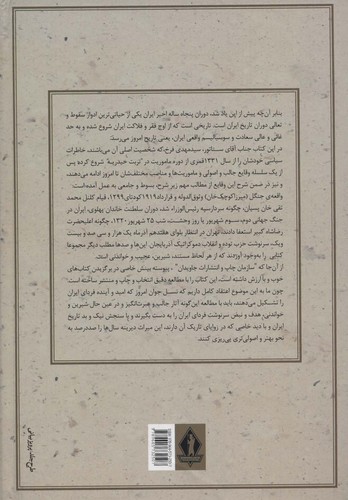 بنابر آن‌چه پیش از این یاد شد، دوران پنجاه ساله اخیر ایران یکی از حیاتی‌ترین ادوار سقوط و
تعالی دوران تاریخ ایران است، تاریخی است که از اوج فقر و فلاکت ایران شروع شده و به حد
غائی و عالی سعادت و سوسیالیسم واقعی ایران، یعنی تاریخ امروز می‌رسد.
در این کتاب جناب آقای سناتور، سیدمهدی فرخ-که شخصیت اصلی آن می‌باشند، خاطرات
سیاسی خودشان را از ۱۳۳۱قمری از دوره ماموریت در "تربت حیدریه" شروع کرده پس
از یک سلسله وقایع جالب و اصولی و ماموریت‌ها و مناصب مختلفشان تا امروز ادامه می‌دهند،
و نیز در ضمن شرح این وقایع از مطالب مهم زیر شرح، بسوط و جامعی به عمل آمده است:
واقعه‌ی جنگل «میرزاکوچک‌خان» وثوق‌الدوله و قرارداد ۱۹۱۹کودتای ۱۲۹۹، قیام کلنل محمد
تقی خان پسیان، چگونه سردارسپه رئیس‌الوزراء شد، دوران سلطنت خاندان پهلوی، ایران در
جنگ جهانی دوم،سوم شهریور یا روز وحشت، شب ۲۵ شهریور ۱۳۲۰، چگونه اعلیحضرت
رضاشاه کبیر استعفا دادند، تهران در انتظار بلوای هفدهم آذرماه یک هزار و سی صد و بیست
ویک، سرنوشت حزب توده و انقلاب دموکراتیک آذربایجان این‌ها و صدها مطلب دیگر مجموعا
کتابی را به‌وجود آوردند که از هر لحاظ مستند، شیرین، عجیب و خواندنی است.
از آن‌جا که "سازمان چاپ و انتشارات جاویدان" ، پیوسته بینش خاصی در برگزیدن کتاب‌های
خوب و با ارزش داشته است، این کتاب را با مطالعه‌ی دقیق انتخاب و چاپ و منتشر ساخته است
چون ما به این موضوع اعتقاد کامل داریم که نسل جوان امروز که امید و آینده فردای ایران
را تشکیل می‌دهند، باید با مطالعه این‌گونه آثار جالب و هنرانگیز و در عین حال شیرین و
خواندنی، هدف و نبض سرنوشت فردای ایران را به دست بگیرند و با سنجش نیک و بد تاریخ
ایران و با دید خاصی که در زوایای تاریک آن دارند، این میراث دیرینه سال‌ها را صددرصد به
نحو بهتر و اصولی‌تری پی‌ریزی کنند.
طرح جلد: پرویز بیانی